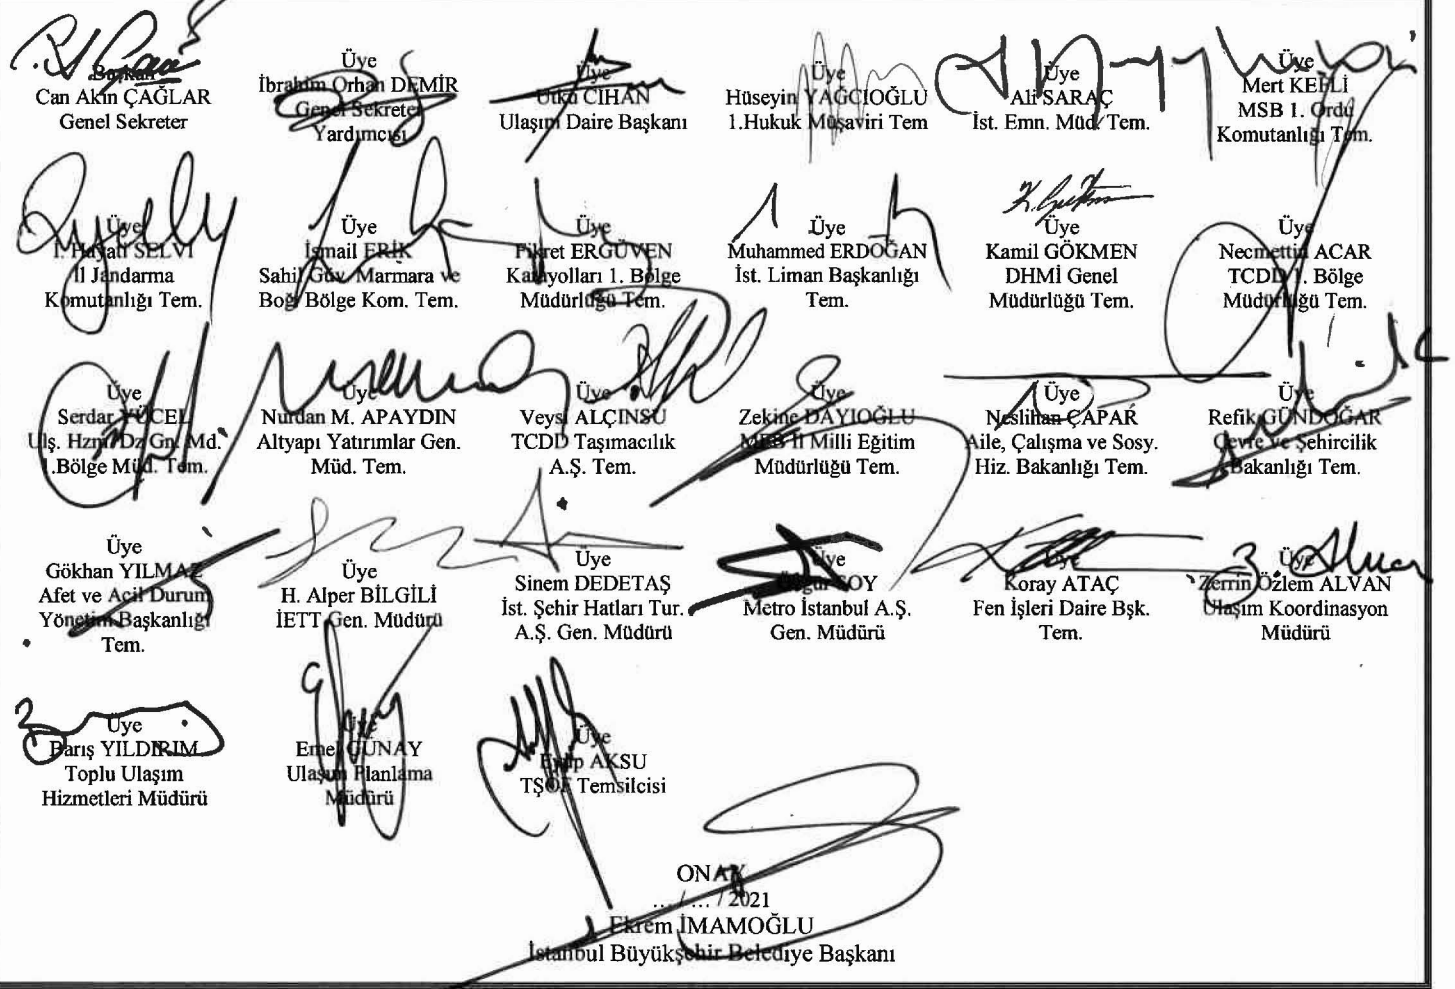 Başkan
Can Akın ÇAĞLAR
Genel Sekreter
Üye
İbrahim Orhan DEMİR
Genel Sekreter
Yardımcısı
Üye
Utku CİHAN
Ulaşım Daire Başkanı
Üye
Hüseyin YAĞCIOĞLU
1.Hukuk Müşaviri Tem
Üye
Ali SARAÇ
İst. Emn. Müd. Tem.
Üye
Mert KEFLİ
MSB 1. Ordu
Komutanlığı Tem.
Üye
İ. Hayati SELVİ
İl Jandarma
Komutanlığı Tem.
Üye
İsmail ERİK
Sahil Güv. Marmara ve
Boğ. Bölge Kom. Tem.
Üye
Fikret ERGÜVEN
Karayolları 1. Bölge
Müdürlüğü Tem.
Üye
Muhammed ERDOĞAN
İst. Liman Başkanlığı
Tem.
Üye
Kamil GÖKMEN
DHMİ Genel
Müdürlüğü Tem.
Üye
Necmettin ACAR
TCDD 1. Bölge
Müdürlüğü Tem.
Üye
Serdar YÜCEL
Ulş. Hzm. Dz Gn. Md.
1.Bölge Müd. Tem.
Üye
Nurdan M. APAYDIN
Altyapı Yatırımlar Gen.
Müd. Tem.
Üye
Veysi ALÇINSU
TCDD Taşımacılık
A.Ş. Tem.
Üye
Zekine DAYIOĞLU
MEB İl Milli Eğitim
Müdürlüğü Tem.
Üye
Neslihan ÇAPAR
Aile, Çalışma ve Sosy.
Hiz. Bakanlığı Tem.
Üye
Refik GÜNDOĞAR
Çevre ve Şehircilik
Bakanlığı Tem.
Üye
Gökhan YILMAZ
Afet ve Acil Durum
Yönetim Başkanlığı
Tem.
Üye
H. Alper BİLGİLİ
İETT Gen. Müdürü
Üye
Sinem DEDETAŞ
İst. Şehir Hatları Tur.
A.Ş. Gen. Müdürü
Üye
Özgür SOY
Metro İstanbul A.Ş.
Gen. Müdürü
Üye
Koray ATAÇ
Fen İşleri Daire Bşk.
Tem.
Üye
Zerrin Özlem ALVAN
Ulaşım Koordinasyon
Müdürü
Üye
Barış YILDIRIM
Toplu Ulaşım
Hizmetleri Müdürü
Üye
Emel GÜNAY
Ulaşım Planlama
Müdürü
Üye
Eyüp AKSU
TŞOF Temsilcisi
ONAY
… / … / 2021
Ekrem İMAMOĞLU
İstanbul Büyükşehir Belediye Başkanı